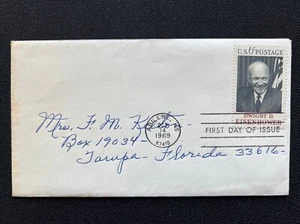 U.S. POSTAGE
DWIGHT D.
EISENHOWER
ABILENE, KS
14
1969
67410
FIRST DAY OF ISSUE
Mrs. F. M.
Box 19034-
Tampa- Florida 33616-